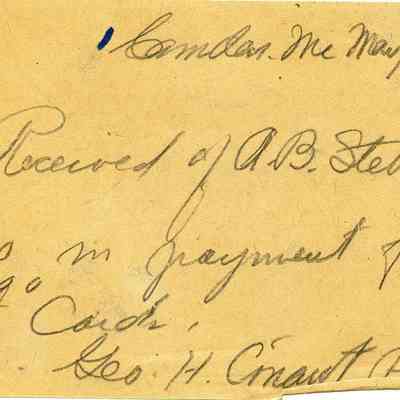 Camden. Me May
Received of A.B. Stev
in payment f
Geo. H. Conant